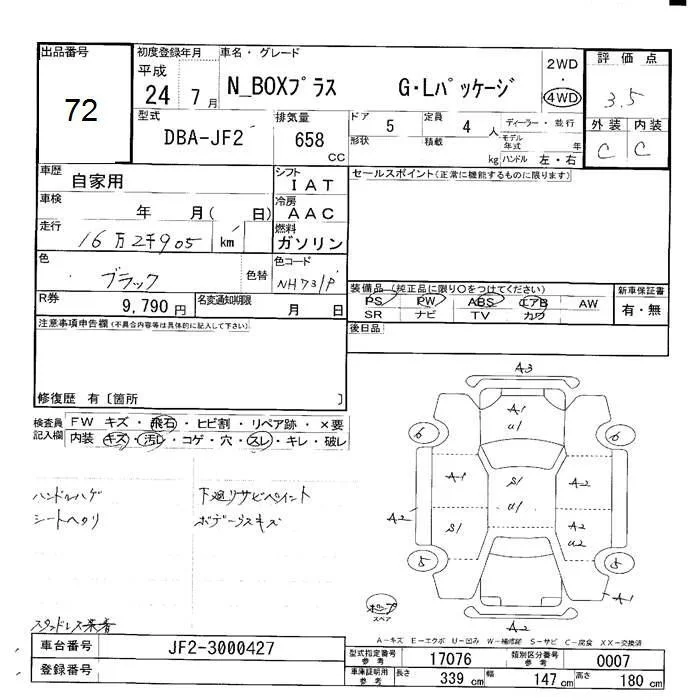 出品番号
72
初度登録年月
平成
24 7月
車名・グレード
N_BOXプラス G・Lパッケージ
2WD
・
4WD
評価点
3.5
外装 内装
C C
型式
DBA-JF2
排気量
658
CC
ドア 5
定員 4 人
形状
積載 kg
ディーラー・並行
モデル年式 年
ハンドル 左・右
車歴
自家用
シフト
IAT
車検
年 月( 日)
冷房
AAC
走行
16万2千905 km
燃料
ガソリン
色
ブラック
色替
色コード
NH731P
R券
9,790 円
名変通知期限
月 日
セールスポイント(正常に機能するものに限ります)
装備品(純正品に限り○をつけてください)
PS PW ABS エアB AW
SR ナビ TV カワ
新車保証書
有・無
後日品
注意事項申告欄(不具合内容等は具体的に記入して下さい)
修復歴 有〔箇所 〕
検査員
記入欄
FW キズ・飛石・ヒビ割・リペア跡・×要
内装 キズ・汚レ・コゲ・穴・スレ・キレ・破レ
ハンドルハゲ
シートヘタリ
下廻リサビペイント
ボデーラスキズ
A3
A1
U1
6 6
A1
S1
A1
A2
S1
U1
A2
U2
A2
5 5
A1
A2
スペア
A-キズ E-エクボ U-凹み W-補修跡 S-サビ C-腐食 XX-交換済
車台番号
JF2-3000427
登録番号
型式指定番号
参考
17076
類別区分番号
参考
0007
車庫証明用
参考
長さ 339 cm
幅 147 cm
高さ 180 cm